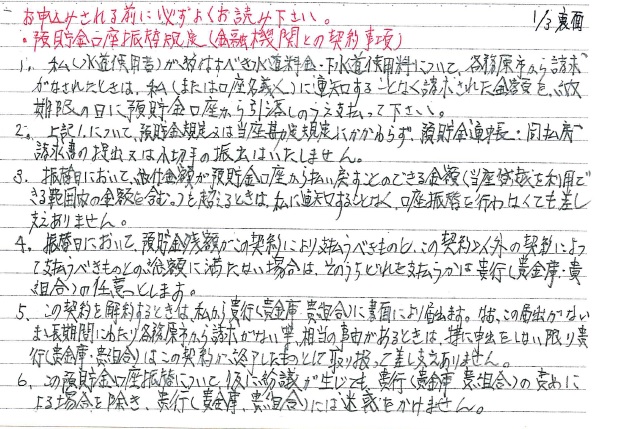 お申込みされる前に必ずよくお読み下さい。
1/3裏面
・預貯金口座振替規定(金融機関との契約事項)
1. 私(水道使用者)が納付すべき水道料金・下水道使用料について、各務原市から請求
がなされたときは、私(または口座名義人)に通知することなく請求された金額を、納
期限の日に預貯金口座から引落しのうえ支払って下さい。
2. 上記1.について、預貯金規定又は当座勘定規定にかかわらず、預貯金通帳・同払戻
請求書の提出又は小切手の振出はいたしません。
3. 振替日において、納付金額が預貯金口座から払い戻すことのできる金額(当座貸越を利用で
きる範囲内の金額を含む。)を超えるときは、私に通知することなく、口座振替を行わなくても差し
支えありません。
4. 振替日において、預貯金残額がこの契約により支払うべきものと、この契約以外の契約によっ
て支払うべきものとの総額に満たない場合は、そのうちどれを支払うかは貴行(貴金庫・貴
組合)の任意とします。
5. この契約を解約するときは、私から貴行(貴金庫 貴組合)に書面により届出ます。なお、この届出がない
まま長期間にわたり各務原市から請求がない等、相当の事由があるときは、特に申出をしない限り貴
行(貴金庫・貴組合)はこの契約が終了したものとして取り扱って差し支えありません。
6. この預貯金口座振替について、仮に紛議が生じても、貴行(貴金庫 貴組合)の責めに
よる場合を除き、貴行(貴金庫、貴組合)には迷惑をかけません。